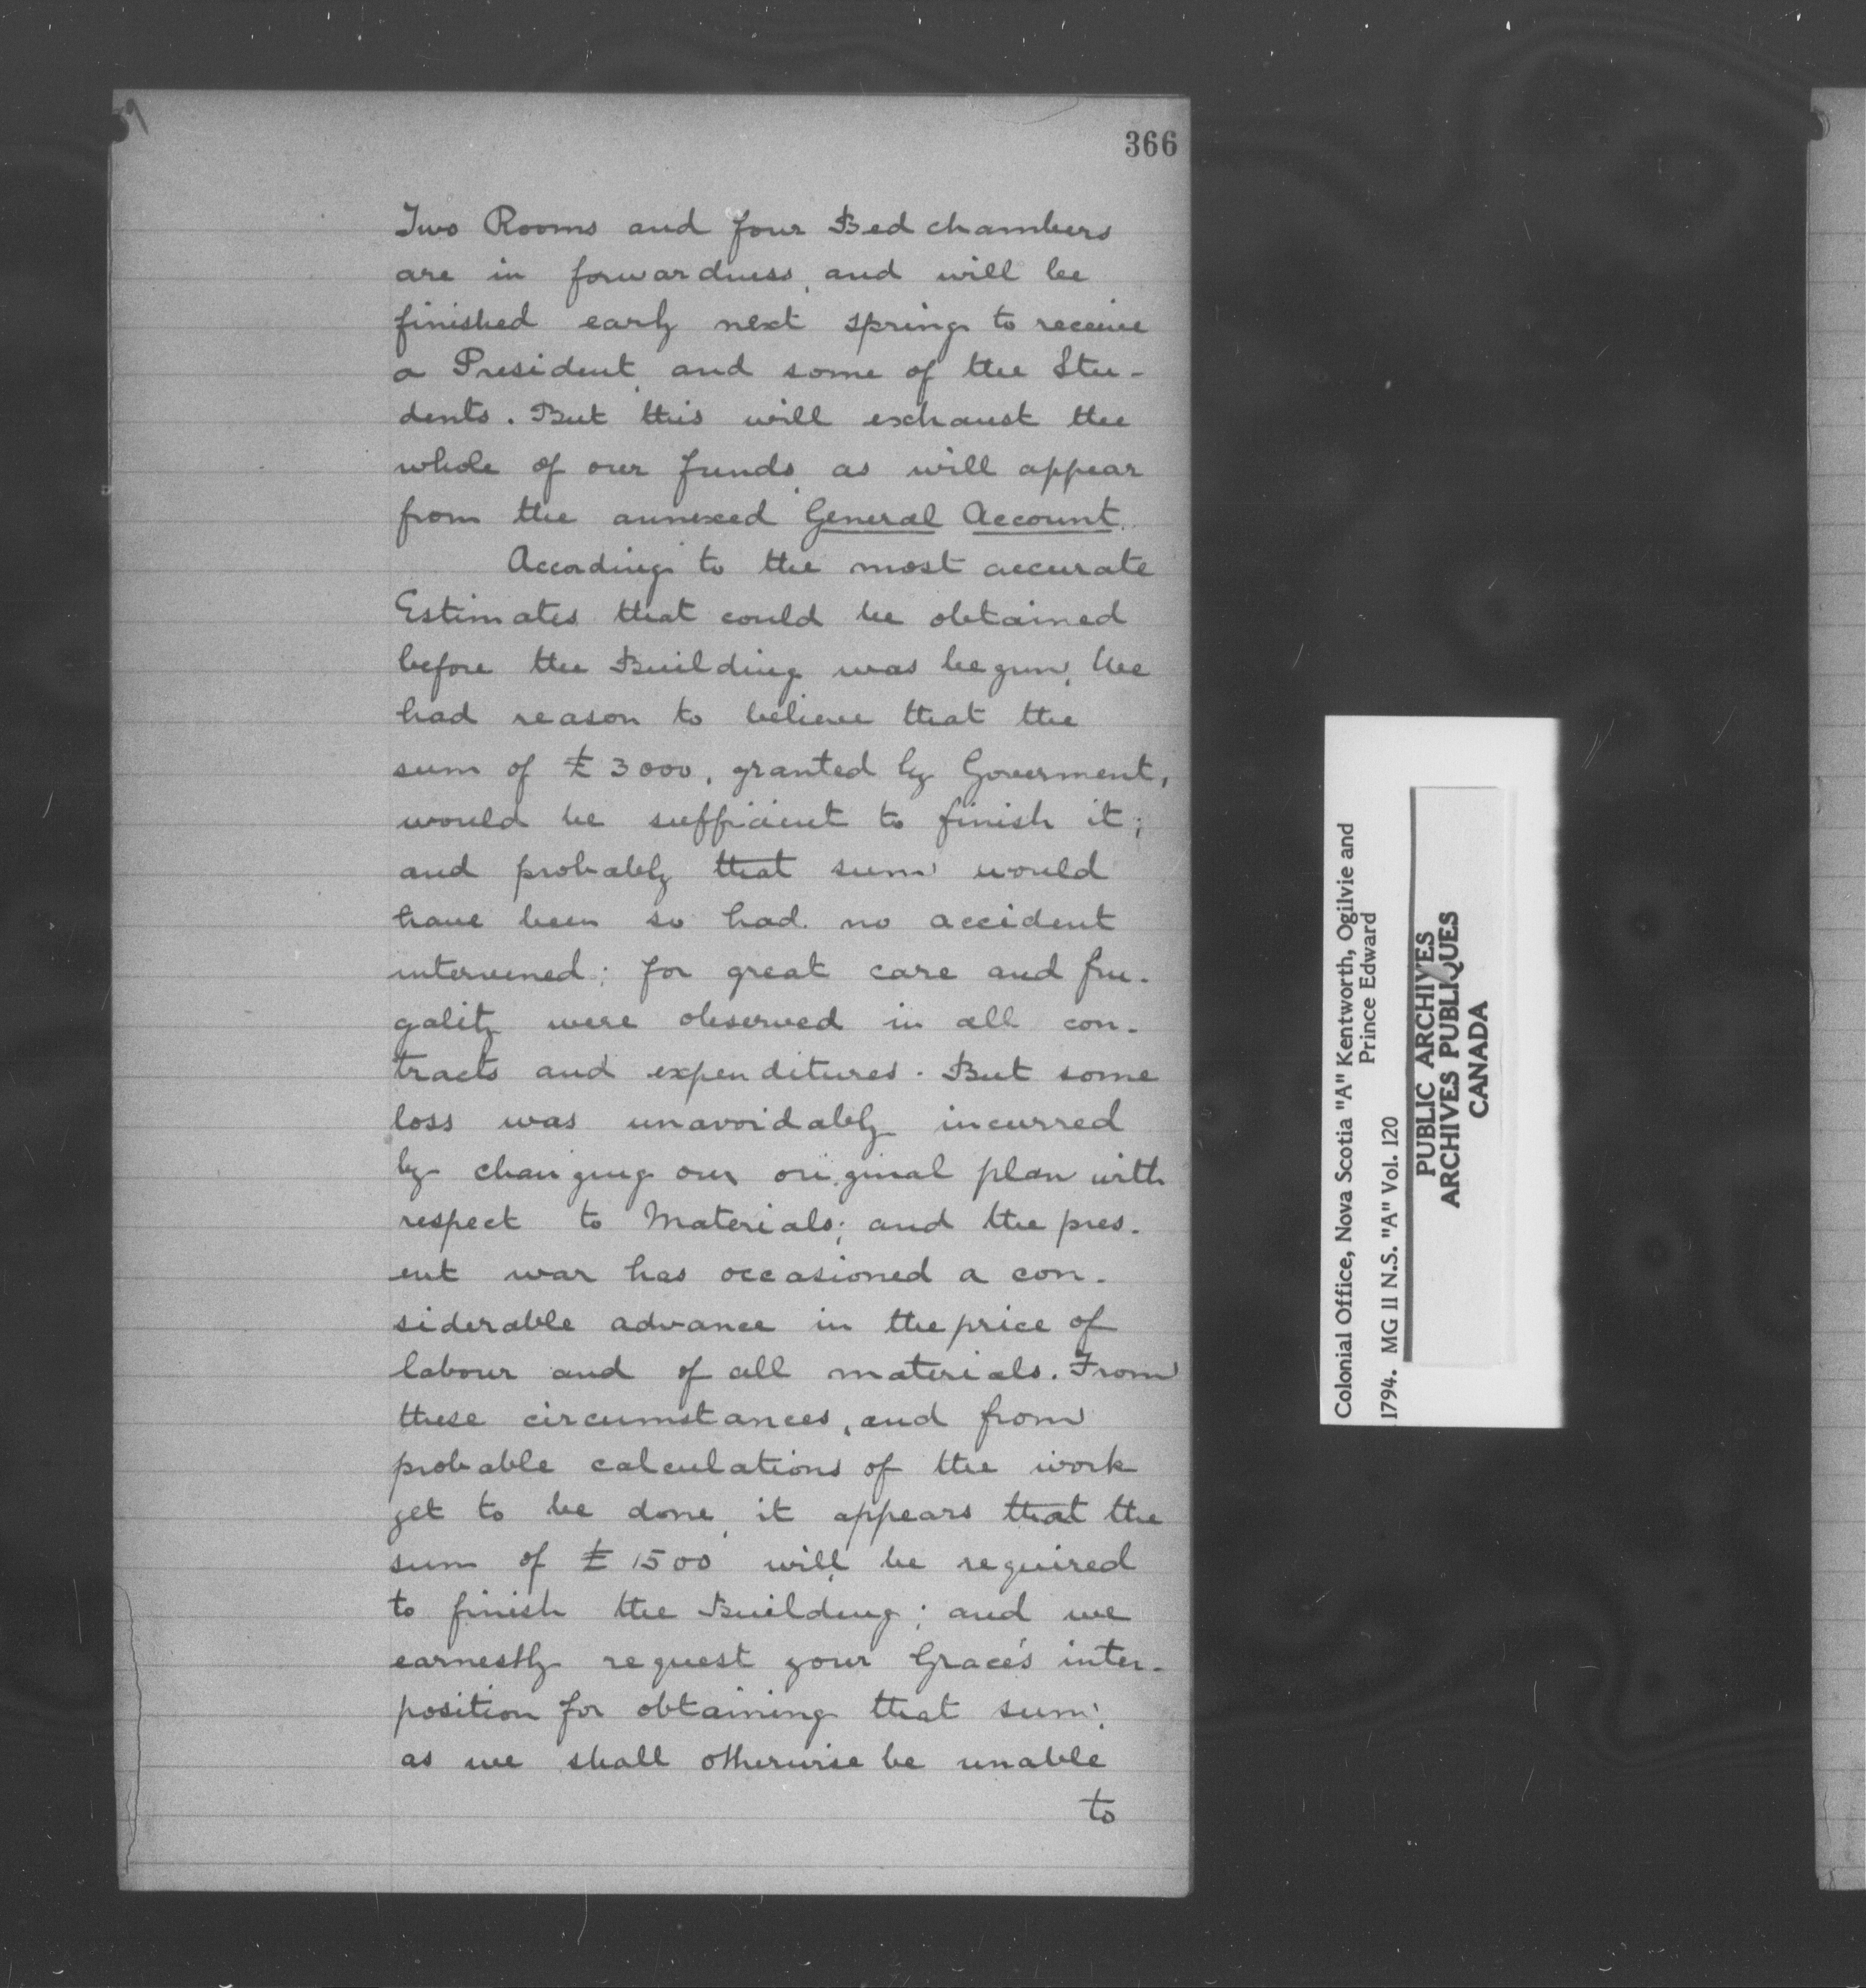 366
Two Rooms and four Bed chambers
are in forwardness, and will be
finished early next spring to receive
a President, and some of the Stu-
dents. But this will exhaust the
whole of our funds, as will appear
from the annexed General Account.
According to the most accurate
Estimates that could be obtained
before the Building was begun, We
had reason to believe that the
sum of £3000, granted by Goverment,
would be sufficient to finish it;
and probably that sum would
have been so had no accident
intervened; for great care and fru-
gality were observed in all con-
tracts and expenditures. But some
loss was unavoidably incurred
by changing our original plan with
respect to Materials; and the pres-
ent war has occasioned a con-
siderable advance in the price of
labour and of all materials. From
these circumstances, and from
probable calculations of the work
yet to be done, it appears that the
sum of £1500 will be required
to finish the Building; and we
earnestly request your Grace's inter-
position for obtaining that sum;
as we shall otherwise be unable
to
Colonial Office, Nova Scotia "A" Kentworth, Ogilvie and
Prince Edward
1794. MG 11 N.S. "A" Vol. 120
PUBLIC ARCHIVES
ARCHIVES PUBLIQUES
CANADA